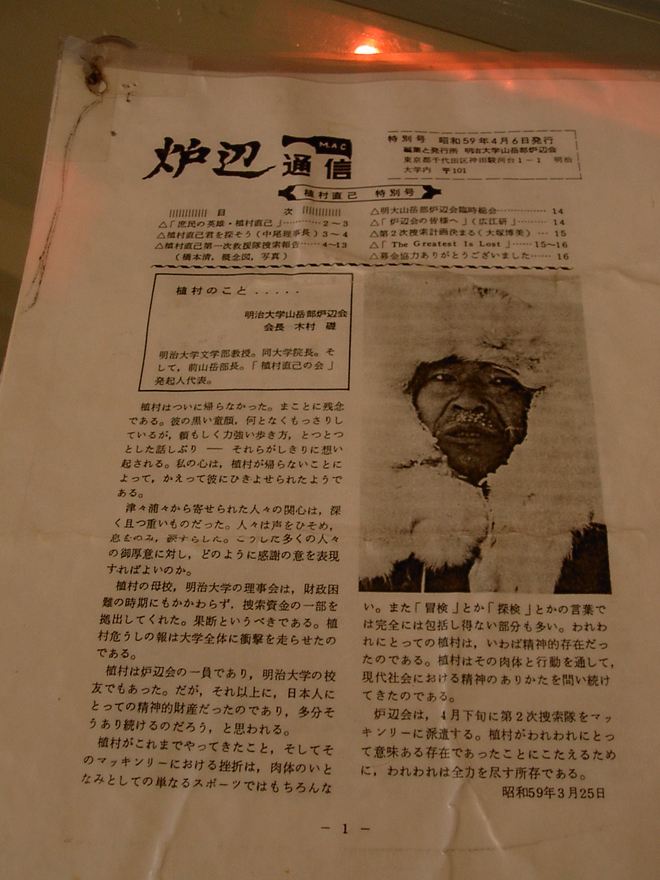 炉辺
M.A.C
通信
特別号 昭和59年4月6日発行
編集と発行所 明治大学山岳部炉辺会
東京都千代田区神田駿河台1-1 明治
大学内 〒101
植村直己 特別号
目 次
△「庶民の英雄・植村直己」………2~3
△植村直己君を探そう(中尾理事長)3~4
△植村直己第一次救援隊捜索報告……4~13
(橋本清,概念図,写真)
△明大山岳部炉辺会臨時総会…………14
△「炉辺会の皆様へ」(広江研)……14
△第2次捜索計画決まる(大塚博美)…15
△「The Greatest Is Lost」……15~16
△募金協力ありがとうございました……16
植村のこと.....
明治大学山岳部炉辺会
会長 木村 礎
明治大学文学部教授。同大学院長。そ
して,前山岳部長。「植村直己の会」
発起人代表。
植村はついに帰らなかった。まことに残念
である。彼の黒い童顔,何となくもっさりし
ているが,頼もしく力強い歩き方,とつとつ
とした話しぶり ── それらがしきりに想い
起される。私の心は,植村が帰らないことに
よって,かえって彼にひきよせられたようで
ある。
津々浦々から寄せられた人々の関心は,深
く且つ重いものだった。人々は声をひそめ,
息をのみ,涙すらした。こうした多くの人々
の御厚意に対し,どのように感謝の意を表現
すればよいのか。
植村の母校,明治大学の理事会は,財政困
難の時期にもかかわらず,捜索資金の一部を
拠出してくれた。果断というべきである。植
村危うしの報は大学全体に衝撃を走らせたの
である。
植村は炉辺会の一員であり,明治大学の校
友でもあった。だが,それ以上に,日本人に
とっての精神的財産だったのであり,多分そ
うあり続けるのだろう,と思われる。
植村がこれまでやってきたこと,そしてそ
のマッキンリーにおける挫折は,肉体のいと
なみとしての単なるスポーツではもちろんな
い。また「冒険」とか「探検」とかの言葉で
は完全には包括し得ない部分も多い。われわ
れにとっての植村は,いわば精神的存在だっ
たのである。植村はその肉体と行動を通して,
現代社会における精神のありかたを問い続け
てきたのである。
炉辺会は,4月下旬に第2次捜索隊をマッ
キンリーに派遣する。植村がわれわれにとっ
て意味ある存在であったことにこたえるため
に,われわれは全力を尽す所存である。
昭和59年3月25日
- 1 -